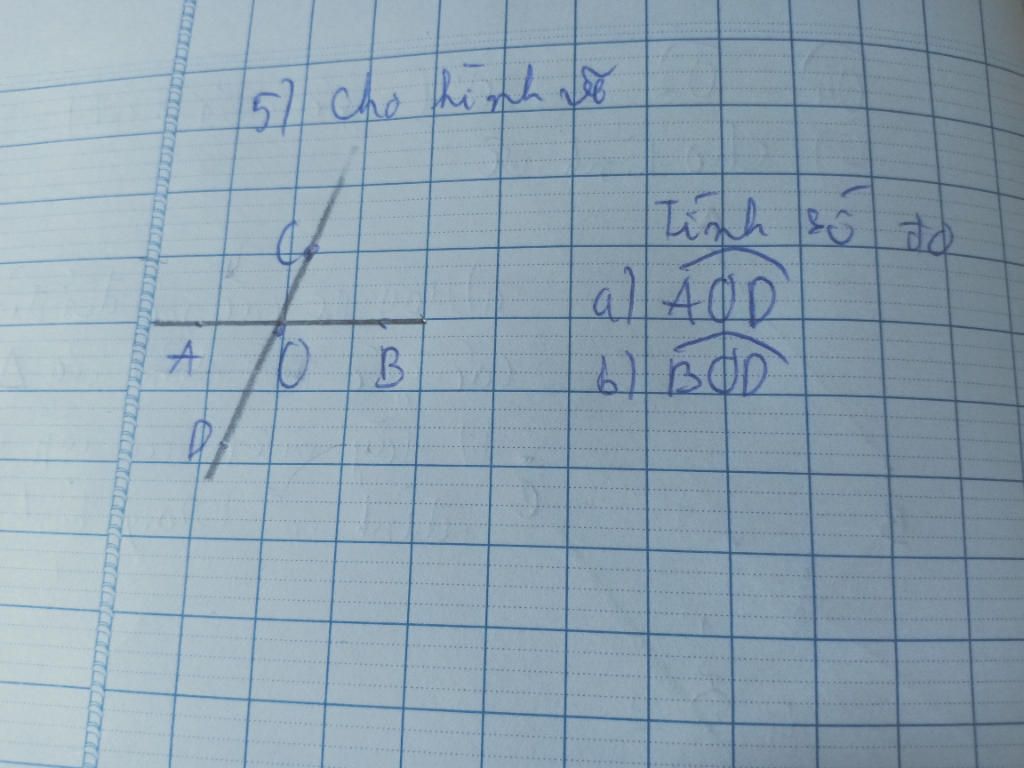 5) Cho hình vẽ
C
A O B
D
Tính số đo
a) AOD
b) BOD